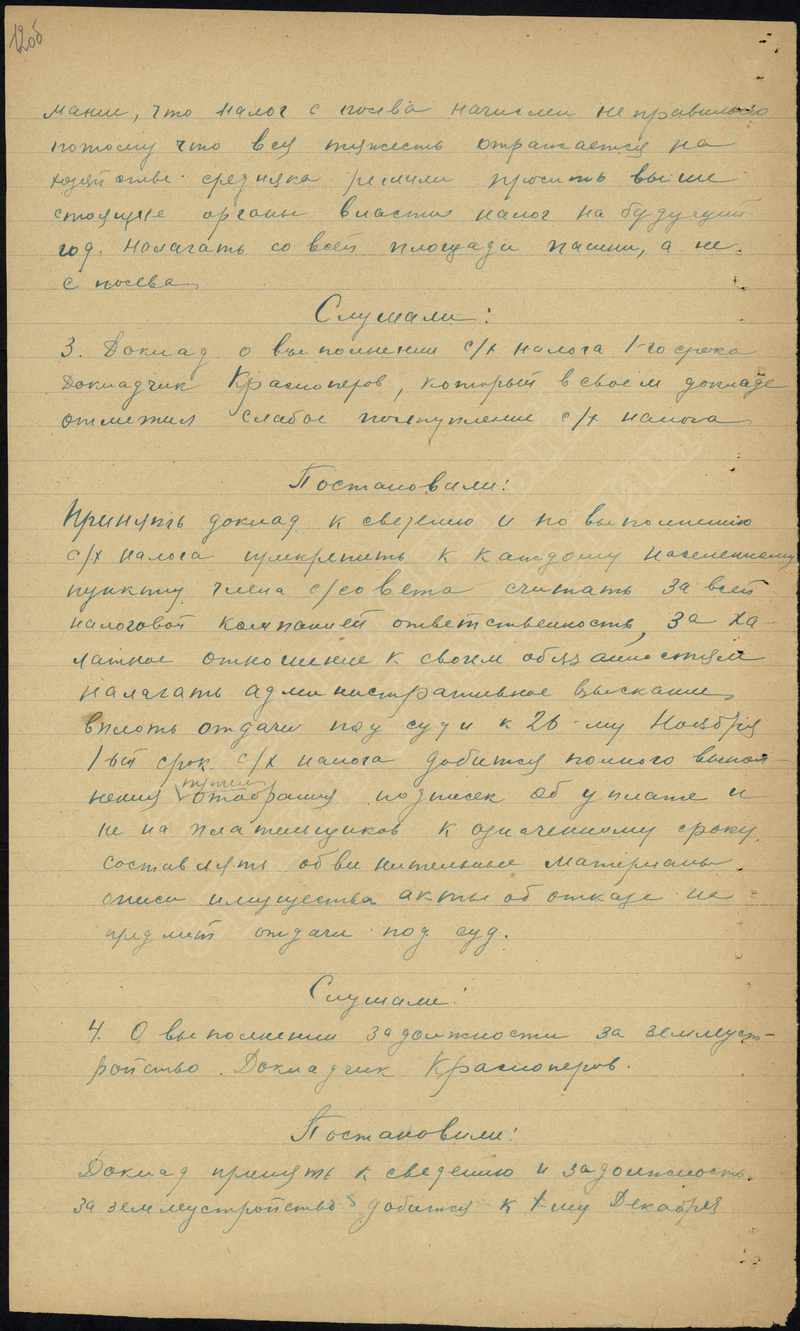 12об
мание, что налог с посева начислен неправильно
потому что вся тяжесть отражается на
хозяйстве середняка решили просить выше
стоящие органы власти налог на будующий
год. Налагать со всей площади пашни, а не
с посева
Слушали:
3. Доклад о выполнении с/х налога 1-го срока
Докладчик Красноперов, который в своем докладе
отметил слабое поступление с/х налога
Постановили:
Принять доклад к сведению и по выполнению
с/х налога прикрепить к каждому населенному
пункту члена с/совета считать за всей
налоговой компанией ответственность, за ха-
латное отношение к своем обязанностям
налагать административное взыскание
вплоть отдачи под суд и к 26-му Ноября
1ый срок с/х налога добится полного выпол-
нения путем отобрания подписок об уплате и
не на плательщиков к означенному сроку
составлять обвинительные материалы
описи имущества акты об отказе на
предмет отдачи под суд.
Слушали:
4. О выполнении задолжности за землеуст-
ройство. Докладчик Красноперов.
Постановили:
Доклад принять к сведению и задолжность
за землеустройство добится к 1-му Декабря